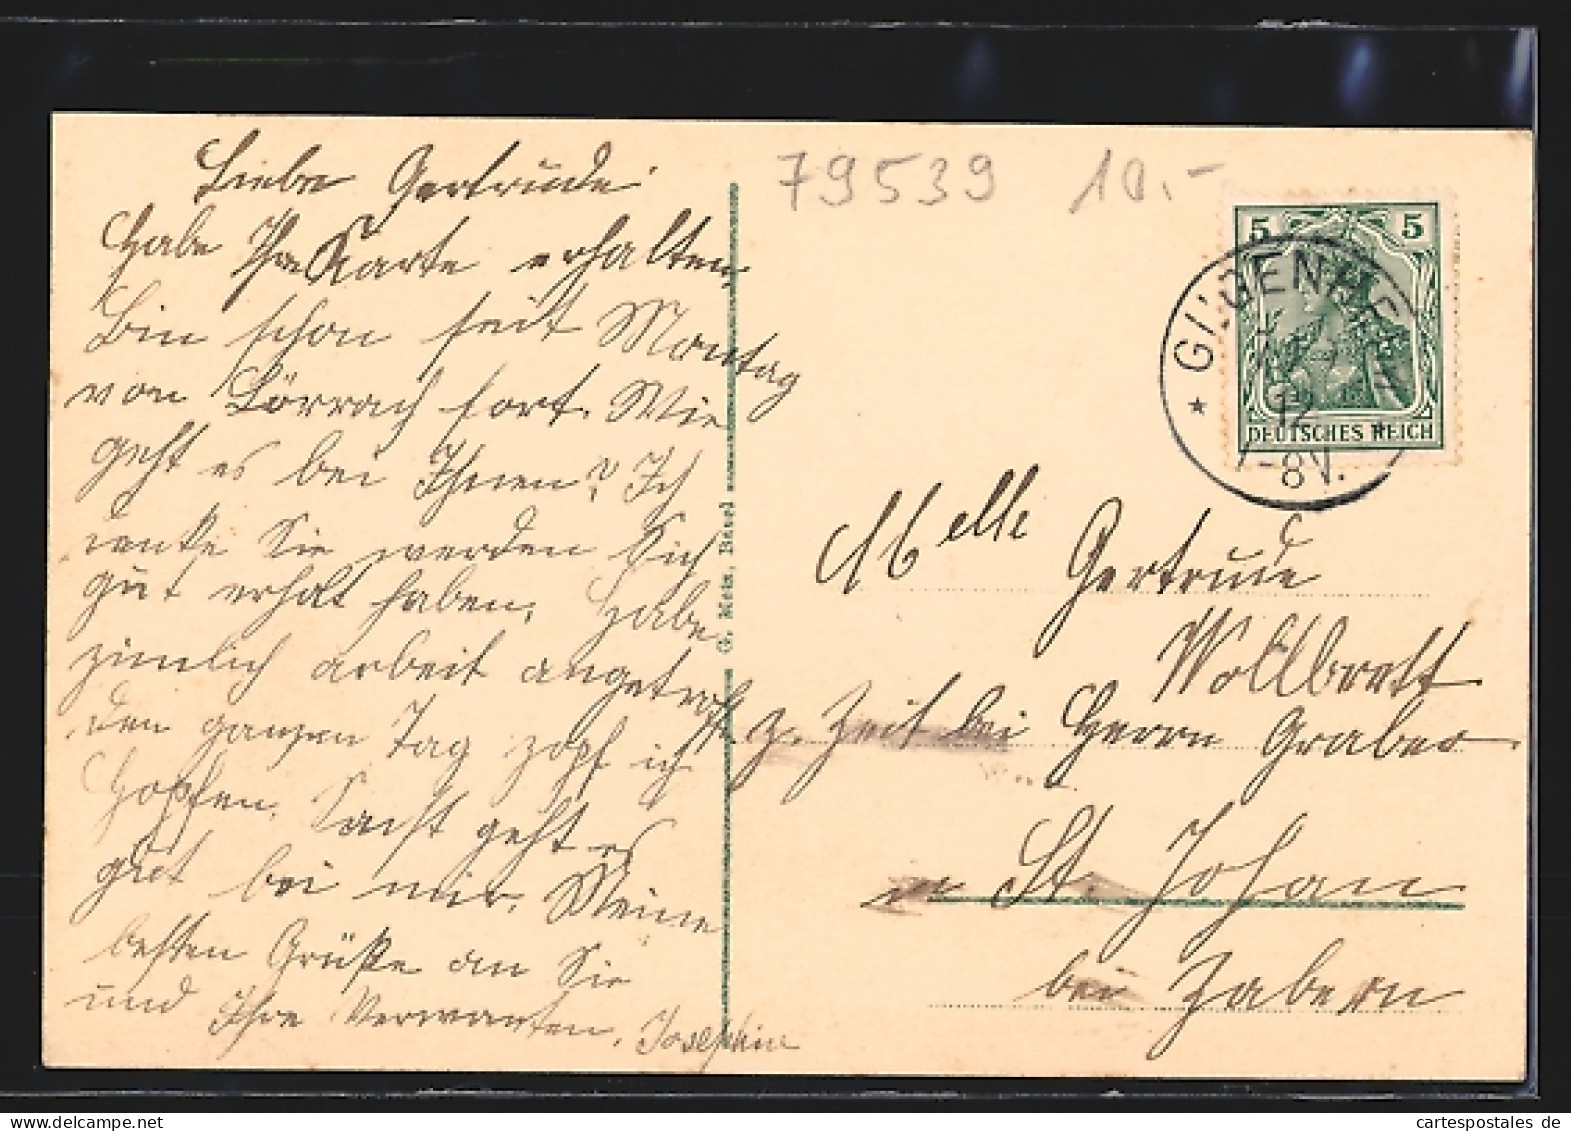 Liebe Gertrude!
Habe Ihre Karte erhalten.
Bin schon seit Montag
von Lörrach fort. Wie
geht es bei Ihnen? Ich
denke Sie werden sich
gut erholt haben. Habe
zimlich arbeit angetroffen.
den ganzen Tag zopf ich
Hopfen. Sonst geht es
gut bei mir. Meine
besten Grüße an Sie
und Ihre Verwanten. Josephine
G. Metz, Basel
79539 10.-
5 5
DEUTSCHES REICH
GINGENHE
12
7-8V.
Melle Gertrude
Wollbrett
z. Zeit bei Herrn Graber
St. Johan
bei Zabern
cartespostales de